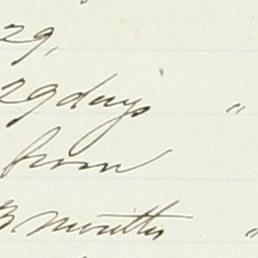 29,
29 days "
from
3 months "